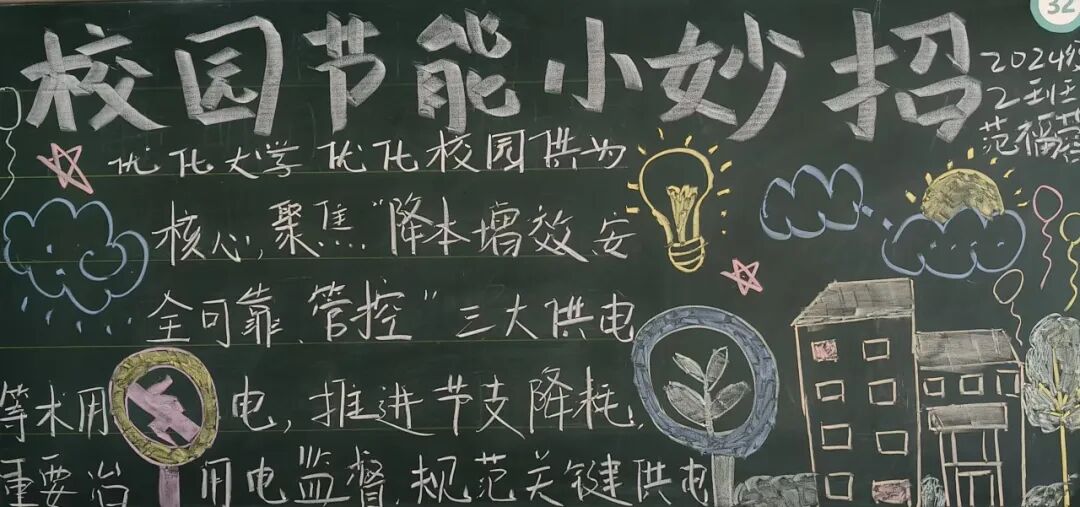 校园节能小妙招
32
2024级
2到王
范福营
优化大学优化校园供为
核心,聚焦“降本增效、安
全可靠、管控”三大供电
等木用 电,推进节支降耗,
重要治 用电监督,规范关键供电